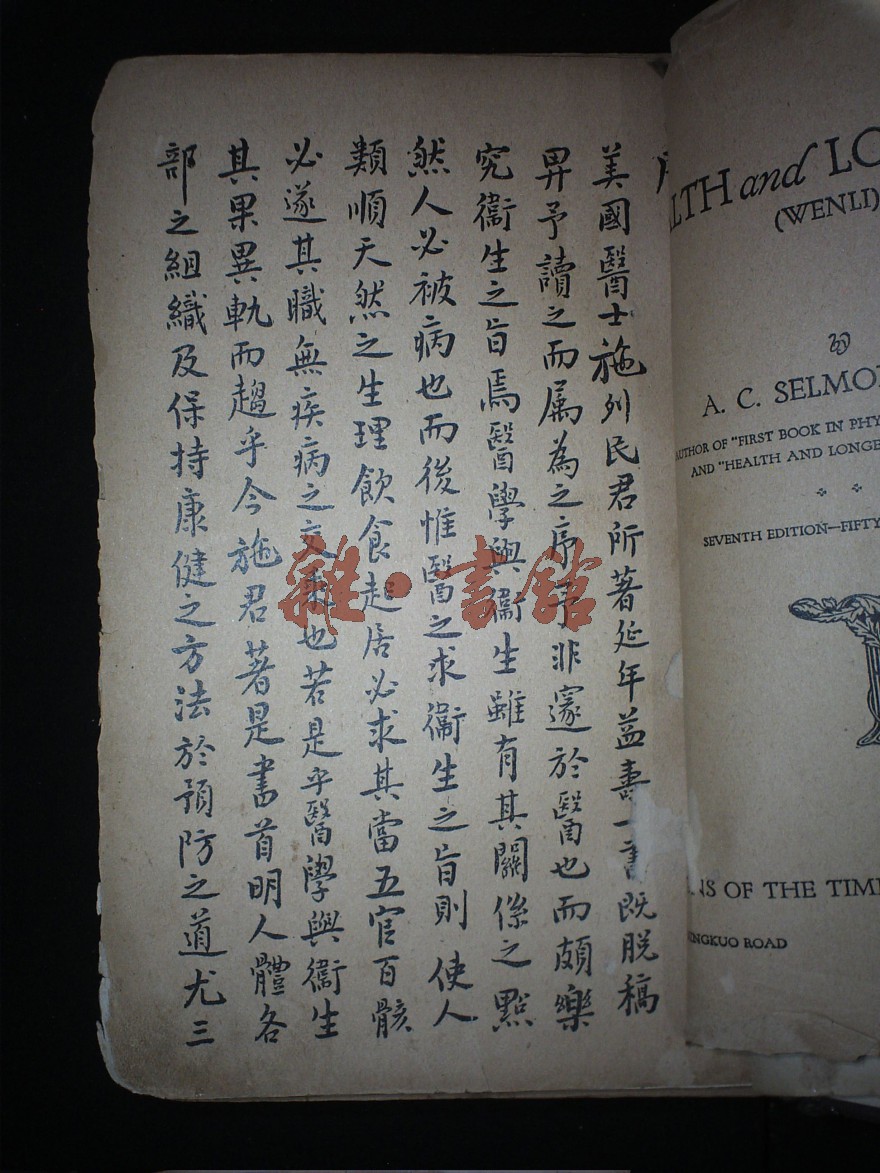 美國醫士施列民君所著延年益壽一書既脱稿
畀予讀之而属為之序予非邃於醫也而頗樂
究衞生之旨焉醫學與衞生雖有其關係之點
然人必被病也而後惟醫之求衞生之旨則使人
類順天然之生理飲食起居必求其當五官百骸
必遂其職無疾病之交乘也若是乎醫學與衞生
其果異軌而趨乎今施君著是書首明人體各
部之組織及保持康健之方法於預防之道尤三
雜·書館
LTH and LO
(WENLI)
By
A. C. SELMO
AUTHOR OF "FIRST BOOK IN PHY
AND "HEALTH AND LONGE
SEVENTH EDITION—FIFTY
NS OF THE TIME
NGKUO ROAD